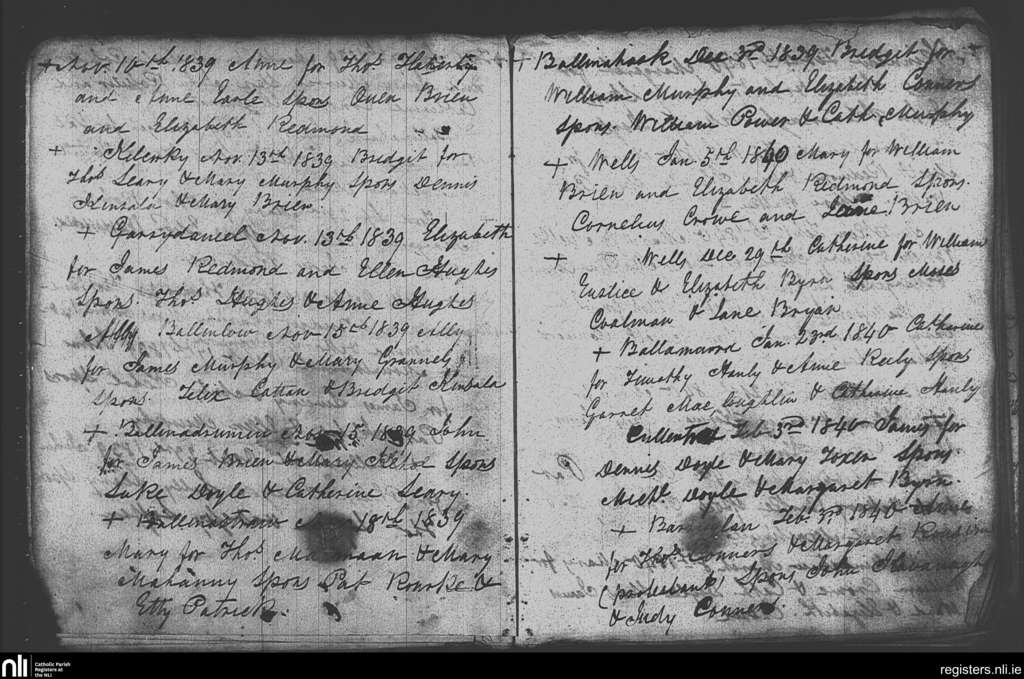 + Nov. 10th 1839 Anne for Thos. Flaherty
and Anne Earle Spons Owen Brien
and Elizabeth Redmond
+ Nov. 13th 1839 Bridget for
Thos. Leary & Mary Murphy Spons Dennis
Kinsala & Mary Brien
+ Garrydaniel Nov. 13th 1839 Elizabeth
for James Redmond and Ellen Hughes
Spons. Thos. Hughes & Anne Hughes
Ally Ballinlow Nov 13th 1839 Ally
for James Murphy & Mary Grannels
Spons. Felix & Bridget Kinsala
+ Ballinadrumin Nov. 15 1839 John
for James Brien & Mary Kehoe Spons
Luke Doyle & Catherine Leary.
+ 18th 1839
Mary for Thos. & Mary
Mahanny Spons Pat Rourke &
Etty Patrick.
+ Ballinahask Dec 3rd 1839 Bridgit for +
William Murphy and Elizabeth Connors
Spons. William Power & Cath. Murphy
+ Wells Jan. 5th 1840 Mary for William
Brien and Elizabeth Redmond Spons.
Cornelius Crowe and Brien
+ Wells Dec 29th Catherine for William
Eustice & Elizabeth Byrn Spons Moses
Coalman & Jane Bryan
+ Ballamoord Jan. 23rd 1840 Catherine
for Timothy Hanly & Anne Reely Spons
Garret Mac loughlin & Catherine Hanly
Feb. 3rd 1840 James for
Dennis Doyle & Mary Foxer Spons.
Michl. Doyle & Margaret Byrn.
+ Feb. 3rd 1840
for Thos. Connors & Margaret
(protestant) Spons. John Kavanagh
& Judy Connors.
nli Catholic Parish
Registers at
the NLI
registers.nli.ie